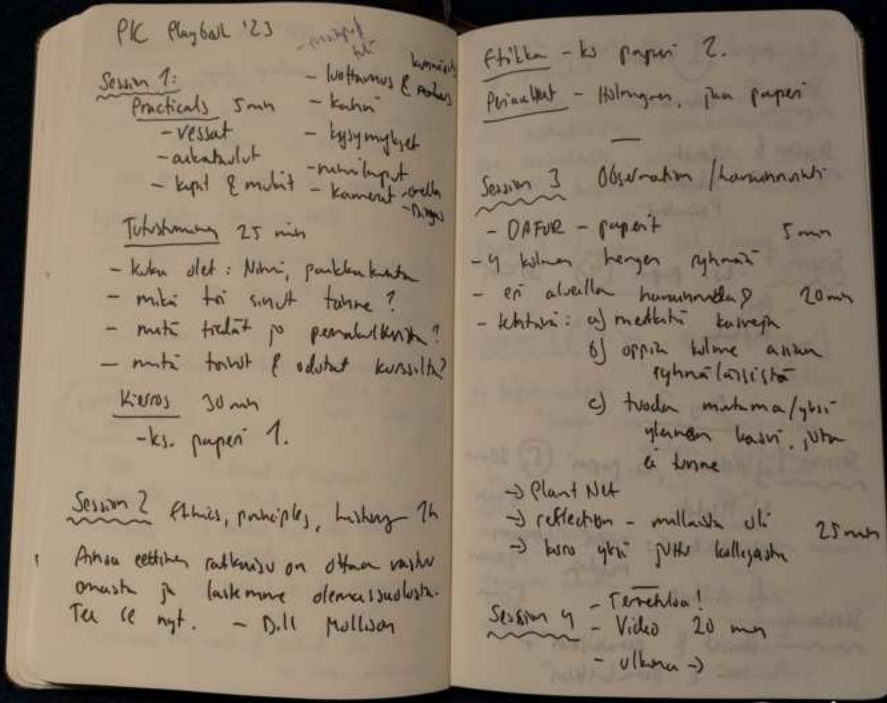 PK Playbook '23
Session 1:
Practicals 5 min
- vessat
- aikataulut
- kupit & mukit
- luottamus &
- kahvi
- kysymykset
- nimilaput
- kamerat
Tutustuminen 25 min
- kuka olet: Nimi, paikkakunta
- mikä toi sinut tänne?
- mitä tiedät jo permakulttuurista?
- mitä toivot & odotat kurssilta?
Kierros 30 min
- ks. paperi 1.
Session 2 Ethics, principles, history 1h
Ainoa eettinen ratkaisu on ottaa vastuu
omasta ja lastemme olemassaolosta.
Tee se nyt. - Bill Mollison
Etiikka - ks paperi 2.
Periaatteet - Holmgren, jaa paperi
Session 3 Observation / havainnointi
- OAFUR - paperit 5 min
- 4 kolmen hengen ryhmää
- eri alueilla 20 min
- tehtävä: a) kasveja
b) oppia kolme asiaa
ryhmäläisistä
c) tuoda muutama/yksi
yleinen kasvi, jota
ei tunne
→ PlantNet
→ reflection - millaista oli 25 min
→ kerro yksi juttu kollegasta
Session 4 - Tervetuloa!
- Video 20 min
- ulkona →